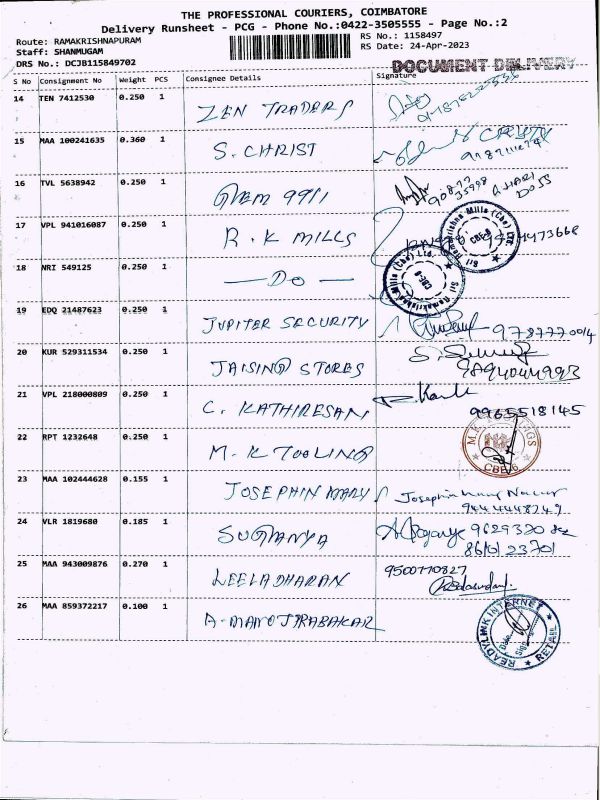 THE PROFESSIONAL COURIERS, COIMBATORE
Delivery Runsheet - PCG - Phone No.:0422-3505555 - Page No.:2
Route: RAMAKRISHNAPURAM
RS No.: 1158497
Staff: SHANMUGAM
RS Date: 24-Apr-2023
DRS No.: DCJB115849702
DOCUMENT DELIVERY
S No Consignment No Weight PCS Consignee Details Signature
14 TEN 7412530 0.250 1 ZEN TRADERS
15 MAA 100241635 0.360 1 S. CHRIST
16 TVL 5638942 0.250 1 GEM 9911 HARI DOSS
17 VPL 941016087 0.250 1 R. K MILLS
18 NRI 549125 0.250 1 — DO —
Sri Ramakrishna Mills (Cbe) Ltd. CBE-6
Sri Ramakrishna Mills (Cbe) Ltd. CBE-6
19 EDQ 21487623 0.250 1 JUPITER SECURITY
20 KUR 529311534 0.250 1 JAISING STORES
21 VPL 218000809 0.250 1 C. KATHIRESAN 9965518145
22 RPT 1232648 0.250 1 M. K TOOLING
CBE-6
23 MAA 102444628 0.155 1 JOSEPHIN MARY Josephin
24 VLR 1819680 0.185 1 SUGANYA 9629320
25 MAA 943009876 0.270 1 LEELADHARAN 9500770827
26 MAA 859372217 0.100 1 A. MANOJ PRABAKAR
READYLINK INTERNET RETAIL
Date
Sig